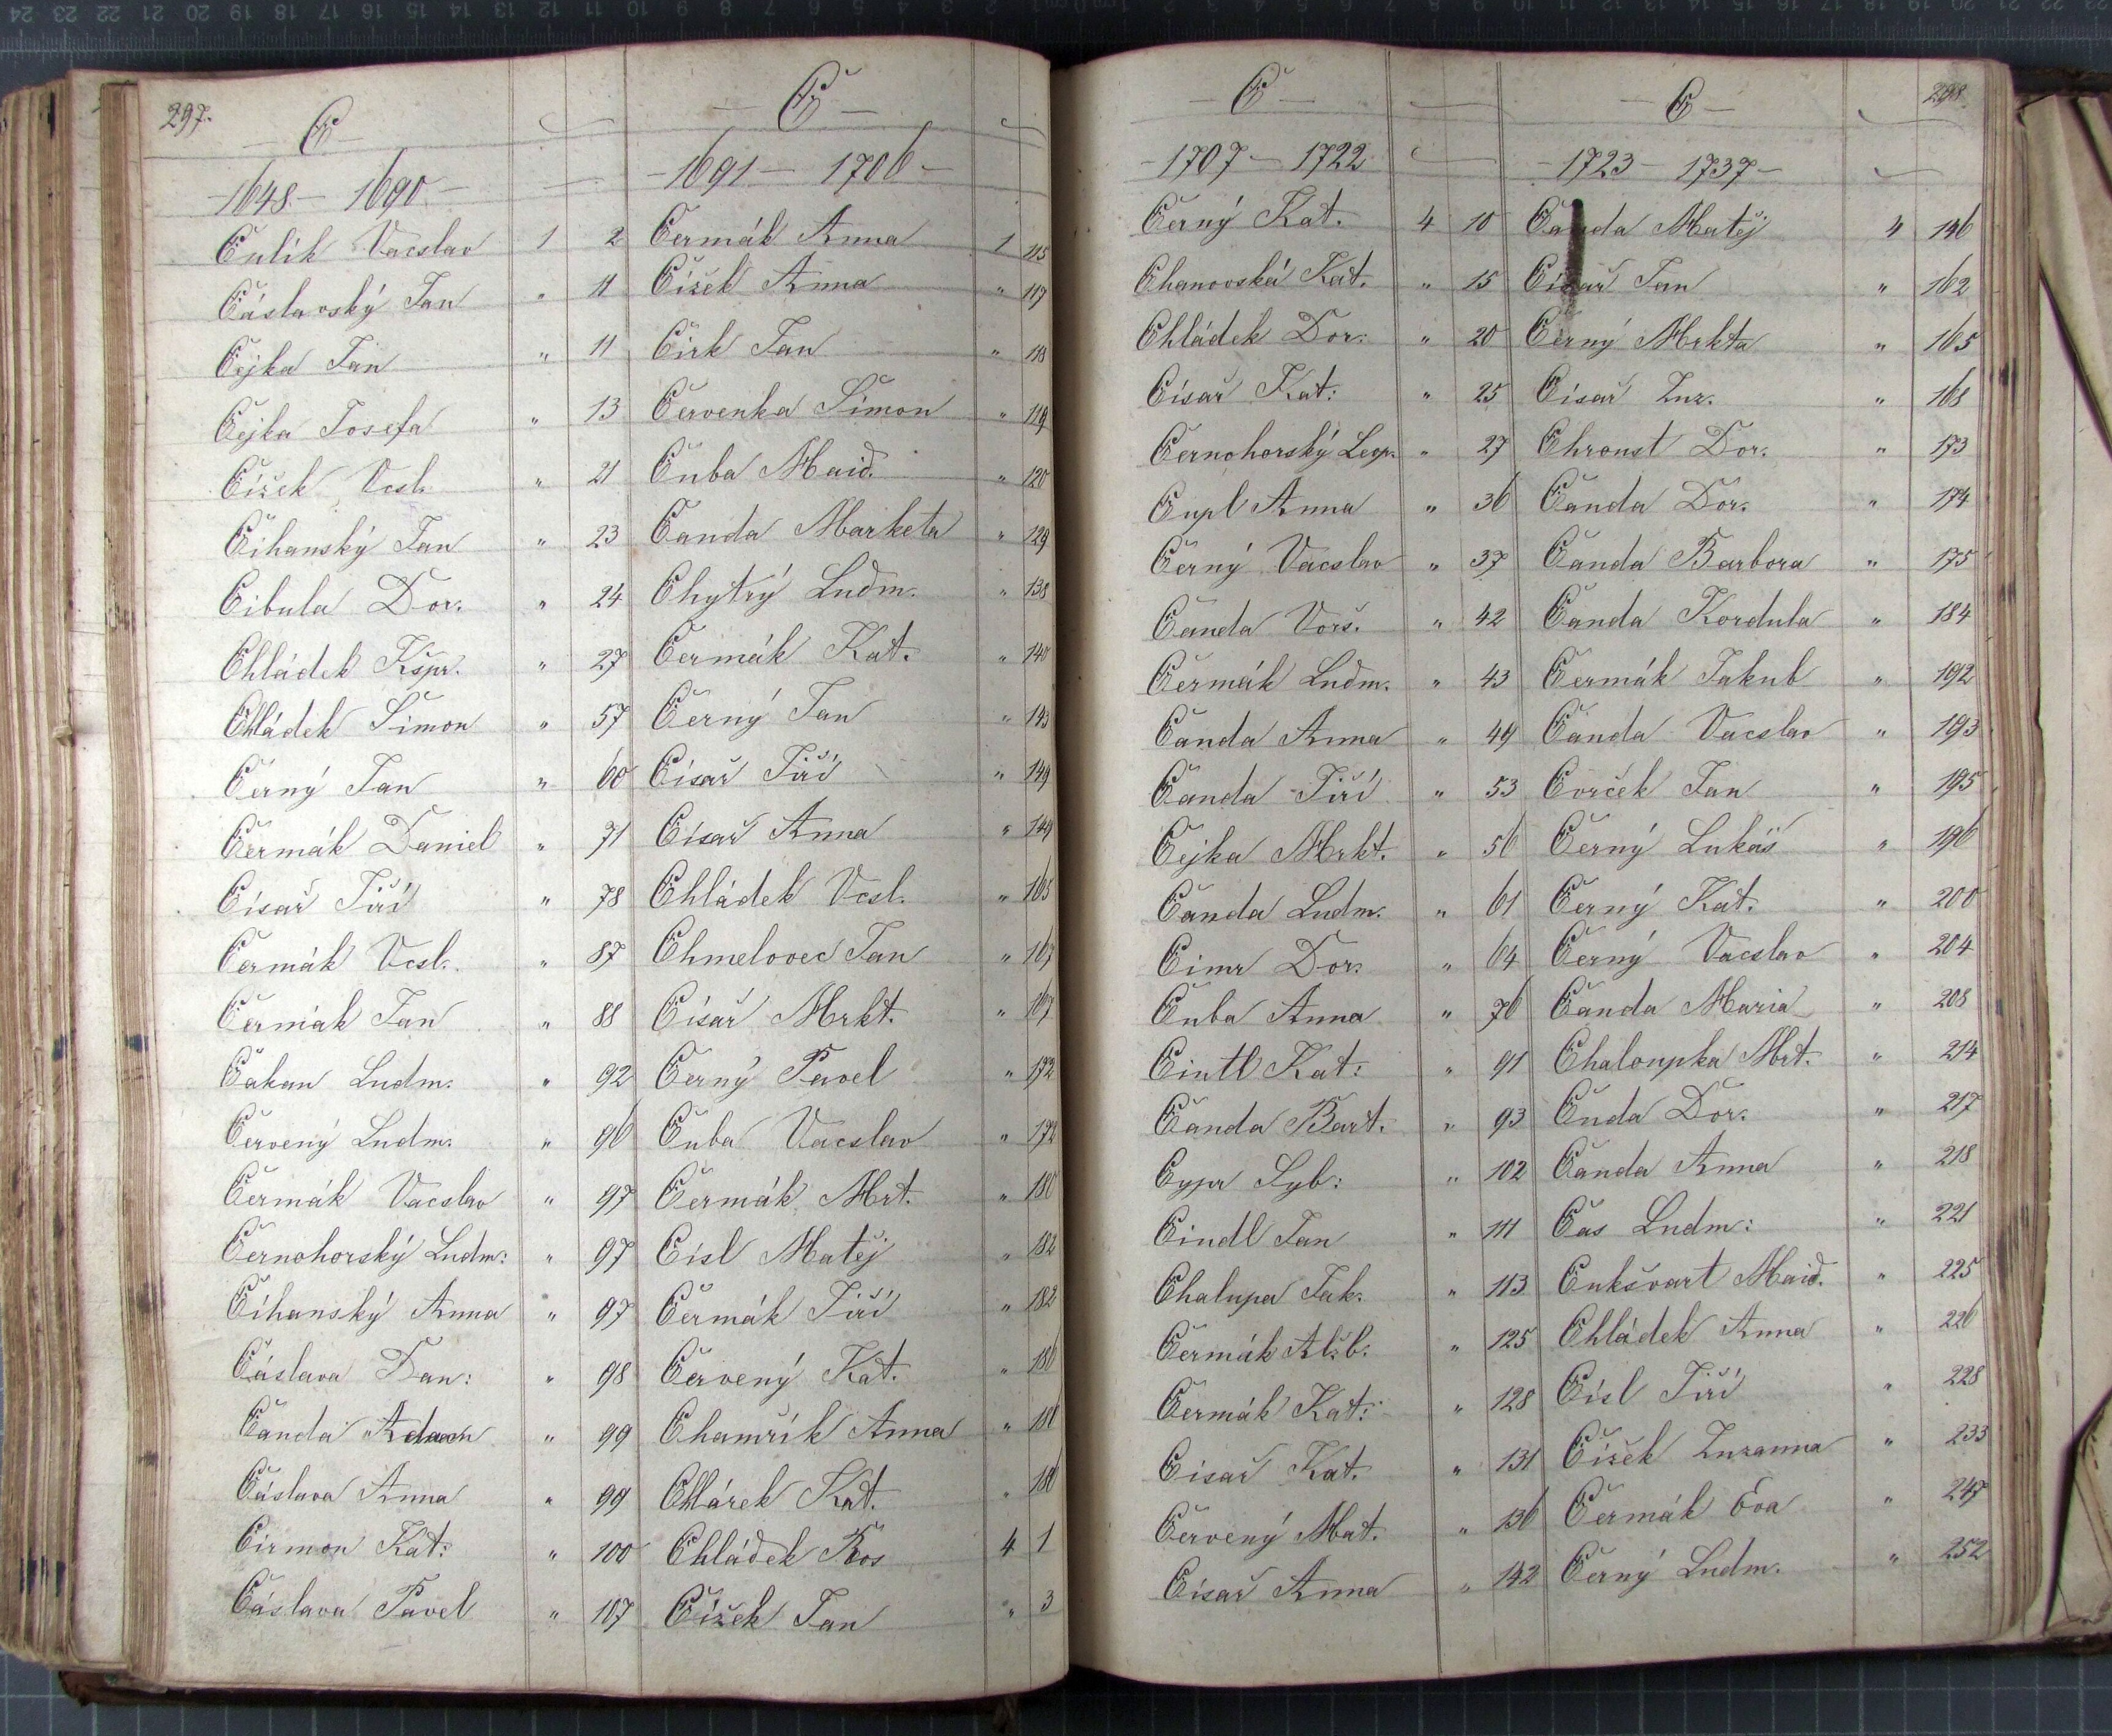 297.
C
1648 – 1690
Culík Vacslav 1 2
Čáslavský Jan " 11
Čejka Jan " 11
Čejka Josefa " 13
Čížek Vcsl. " 21
Číhanský Jan " 23
Cibula Dor. " 24
Chládek Kšpr. " 27
Chládek Šimon " 57
Černý Jan " 60
Čermák Daniel " 71
Císař Jiří " 78
Čermák Vcsl. " 87
Čermák Jan " 88
Čakan Ludm. " 92
Červený Ludm. " 96
Čermák Vacslav " 97
Černohorský Ludm: " 97
Číhanský Anna " 97
Čáslava Dan: " 98
Čanda Adam " 99
Čáslava Anna " 99
Cirmon Kat: " 100
Čáslava Pavel " 107
– C –
– 1691 – 1706 –
Čermák Anna 1 115
Čížek Anna " 117
Čirk Jan " 118
Červenka Šimon " 119
Čuba Maid. " 120
Čanda Marketa " 129
Chytrý Ludm. " 138
Čermák Kat. " 140
Černý Jan " 143
Císař Jiří " 149
Císař Anna " 149
Chládek Vcsl. " 165
Chmelovec Jan " 167
Císař Mrkt. " 167
Černý Pavel " 172
Čuba Vacslav " 172
Čermák Mrt. " 180
Císl Matěj " 182
Čermák Jiří " 182
Červený Kat. " 186
Chamřík Anna " 186
Chlárek Kat. " 186
Chládek Ros 4 1
Čížek Jan " 3
– C –
– 1707 – 1722
Černý Kat. 4 10
Chanovská Kat. " 15
Chládek Dor. " 20
Císař Kat: " 25
Černohorský Leop. " 27
Cupl Anna " 36
Černý Vacslav " 37
Čanda Vorš. " 42
Čermák Ludm. " 43
Čanda Anna " 49
Čanda Jiří " 53
Čejka Mrkt. " 56
Čanda Ludm. " 61
Cimr Dor. " 64
Čuba Anna " 76
Cintl Kat: " 91
Čanda Bart. " 93
Cypr Syb: " 102
Cindl Jan " 111
Chalupa Jak. " 113
Čermák Alžb. " 125
Čermák Kat: " 128
Císař Kat. " 131
Červený Mat. " 136
Císař Anna " 142
298
– C –
– 1723 – 1737 –
Čanda Matěj 4 146
Císař Jan " 162
Černý Mrkta " 165
Císař Zuz. " 168
Chroust Dor. " 173
Čanda Dor. " 174
Čanda Barbora " 175
Čanda Kordula " 184
Čermák Jakub " 192
Čanda Vacslav " 193
Cvrček Jan " 195
Černý Lukáš " 196
Černý Kat. " 200
Černý Vacslav " 204
Čanda Maria " 208
Chaloupka Mrt. " 214
Čuda Dor. " 217
Čanda Anna " 218
Čas Ludm: " 221
Cukšvart Maid. " 225
Chládek Anna " 226
Císl Jiří " 228
Čížek Zuzanna " 233
Čermák Eva " 247
Černý Ludm. " 252